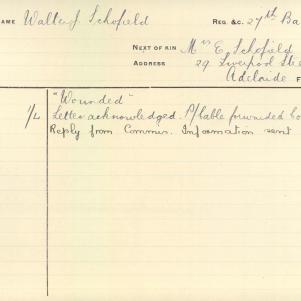 NAME Walter J. Schofield REG. &C. 27th Ba
NEXT OF KIN Mrs E. Schofield
ADDRESS 29 Liverpool Stre
Adelaide F
"Wounded"
1/L Letter acknowledged. P/Cable forwarded Co
Reply from Commis. Information sent